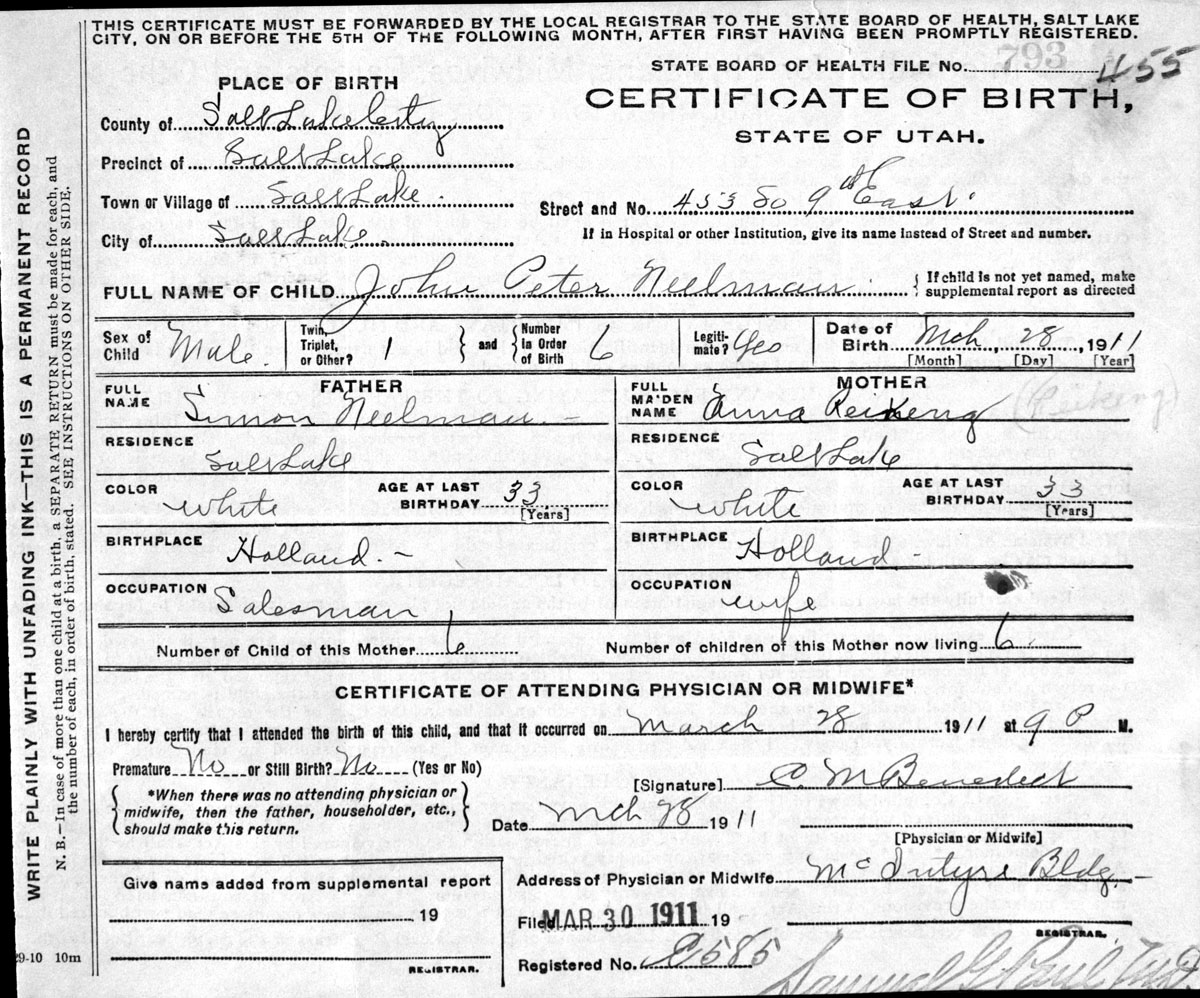 THIS CERTIFICATE MUST BE FORWARDED BY THE LOCAL REGISTRAR TO THE STATE BOARD OF HEALTH, SALT LAKE
CITY, ON OR BEFORE THE 5TH OF THE FOLLOWING MONTH, AFTER FIRST HAVING BEEN PROMPTLY REGISTERED.
STATE BOARD OF HEALTH FILE No. 793 455
PLACE OF BIRTH
CERTIFICATE OF BIRTH,
STATE OF UTAH.
County of Salt Lake City
Precinct of Salt Lake
Town or Village of Salt Lake.
Street and No. 453 So 9th East.
City of Salt Lake.
If in Hospital or other Institution, give its name instead of Street and number.
FULL NAME OF CHILD John Peter Neelman { If child is not yet named, make
supplemental report as directed
Sex of Child Male. Twin, Triplet, or Other? 1 } and { Number In Order of Birth 6 Legiti-mate? Yes Date of Birth Mch 28, 1911
[Month] [Day] [Year]
FATHER MOTHER
FULL NAME Simon Neelman - FULL MAIDEN NAME Anna Reikeng (Reikeng)
RESIDENCE Salt Lake RESIDENCE Salt Lake
COLOR white AGE AT LAST BIRTHDAY 33 [Years] COLOR white AGE AT LAST BIRTHDAY 33 [Years]
BIRTHPLACE Holland - BIRTHPLACE Holland -
OCCUPATION Salesman OCCUPATION wife
Number of Child of this Mother 6 Number of children of this Mother now living 6
CERTIFICATE OF ATTENDING PHYSICIAN OR MIDWIFE*
I hereby certify that I attended the birth of this child, and that it occurred on March 28 1911 at 9 P M.
Premature No or Still Birth? No (Yes or No)
[Signature] C. M Benedect
*When there was no attending physician or
midwife, then the father, householder, etc.,
should make this return.
Date Mch 28 1911
[Physician or Midwife]
Give name added from supplemental report
19
REGISTRAR.
Address of Physician or Midwife McIntyre Bldg. -
Filed MAR 30 1911 19
REGISTRAR.
Registered No. C585
Samuel G Paul MD
29-10 10m
WRITE PLAINLY WITH UNFADING INK—THIS IS A PERMANENT RECORD
N. B.—In case of more than one child at a birth, a SEPARATE RETURN must be made for each, and
the number of each, in order of birth, stated. SEE INSTRUCTIONS ON OTHER SIDE.